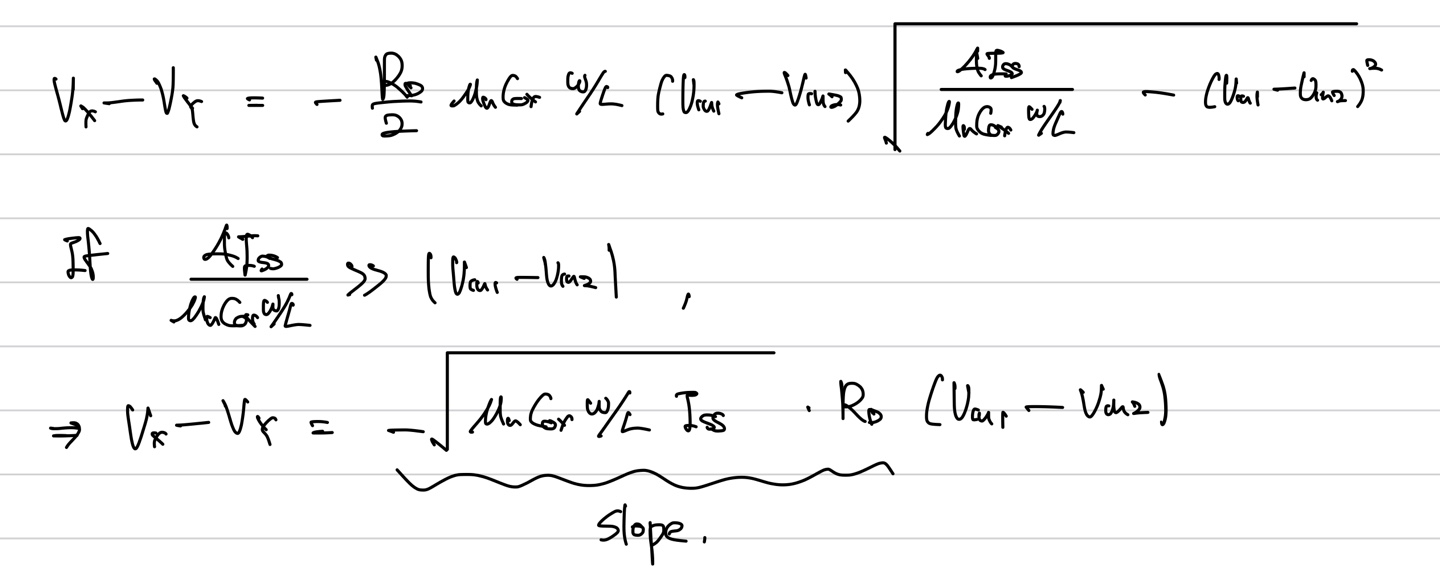 Vx − VY = − RD/2 μnCox W/L (Vin1 − Vin2) √(4Iss/(μnCox W/L) − (Vin1 − Vin2)²)
If 4Iss/(μnCox W/L) >> (Vin1 − Vin2) ,
⇒ Vx − VY = −√(μnCox W/L Iss) · RD (Vin1 − Vin2)
Slope.